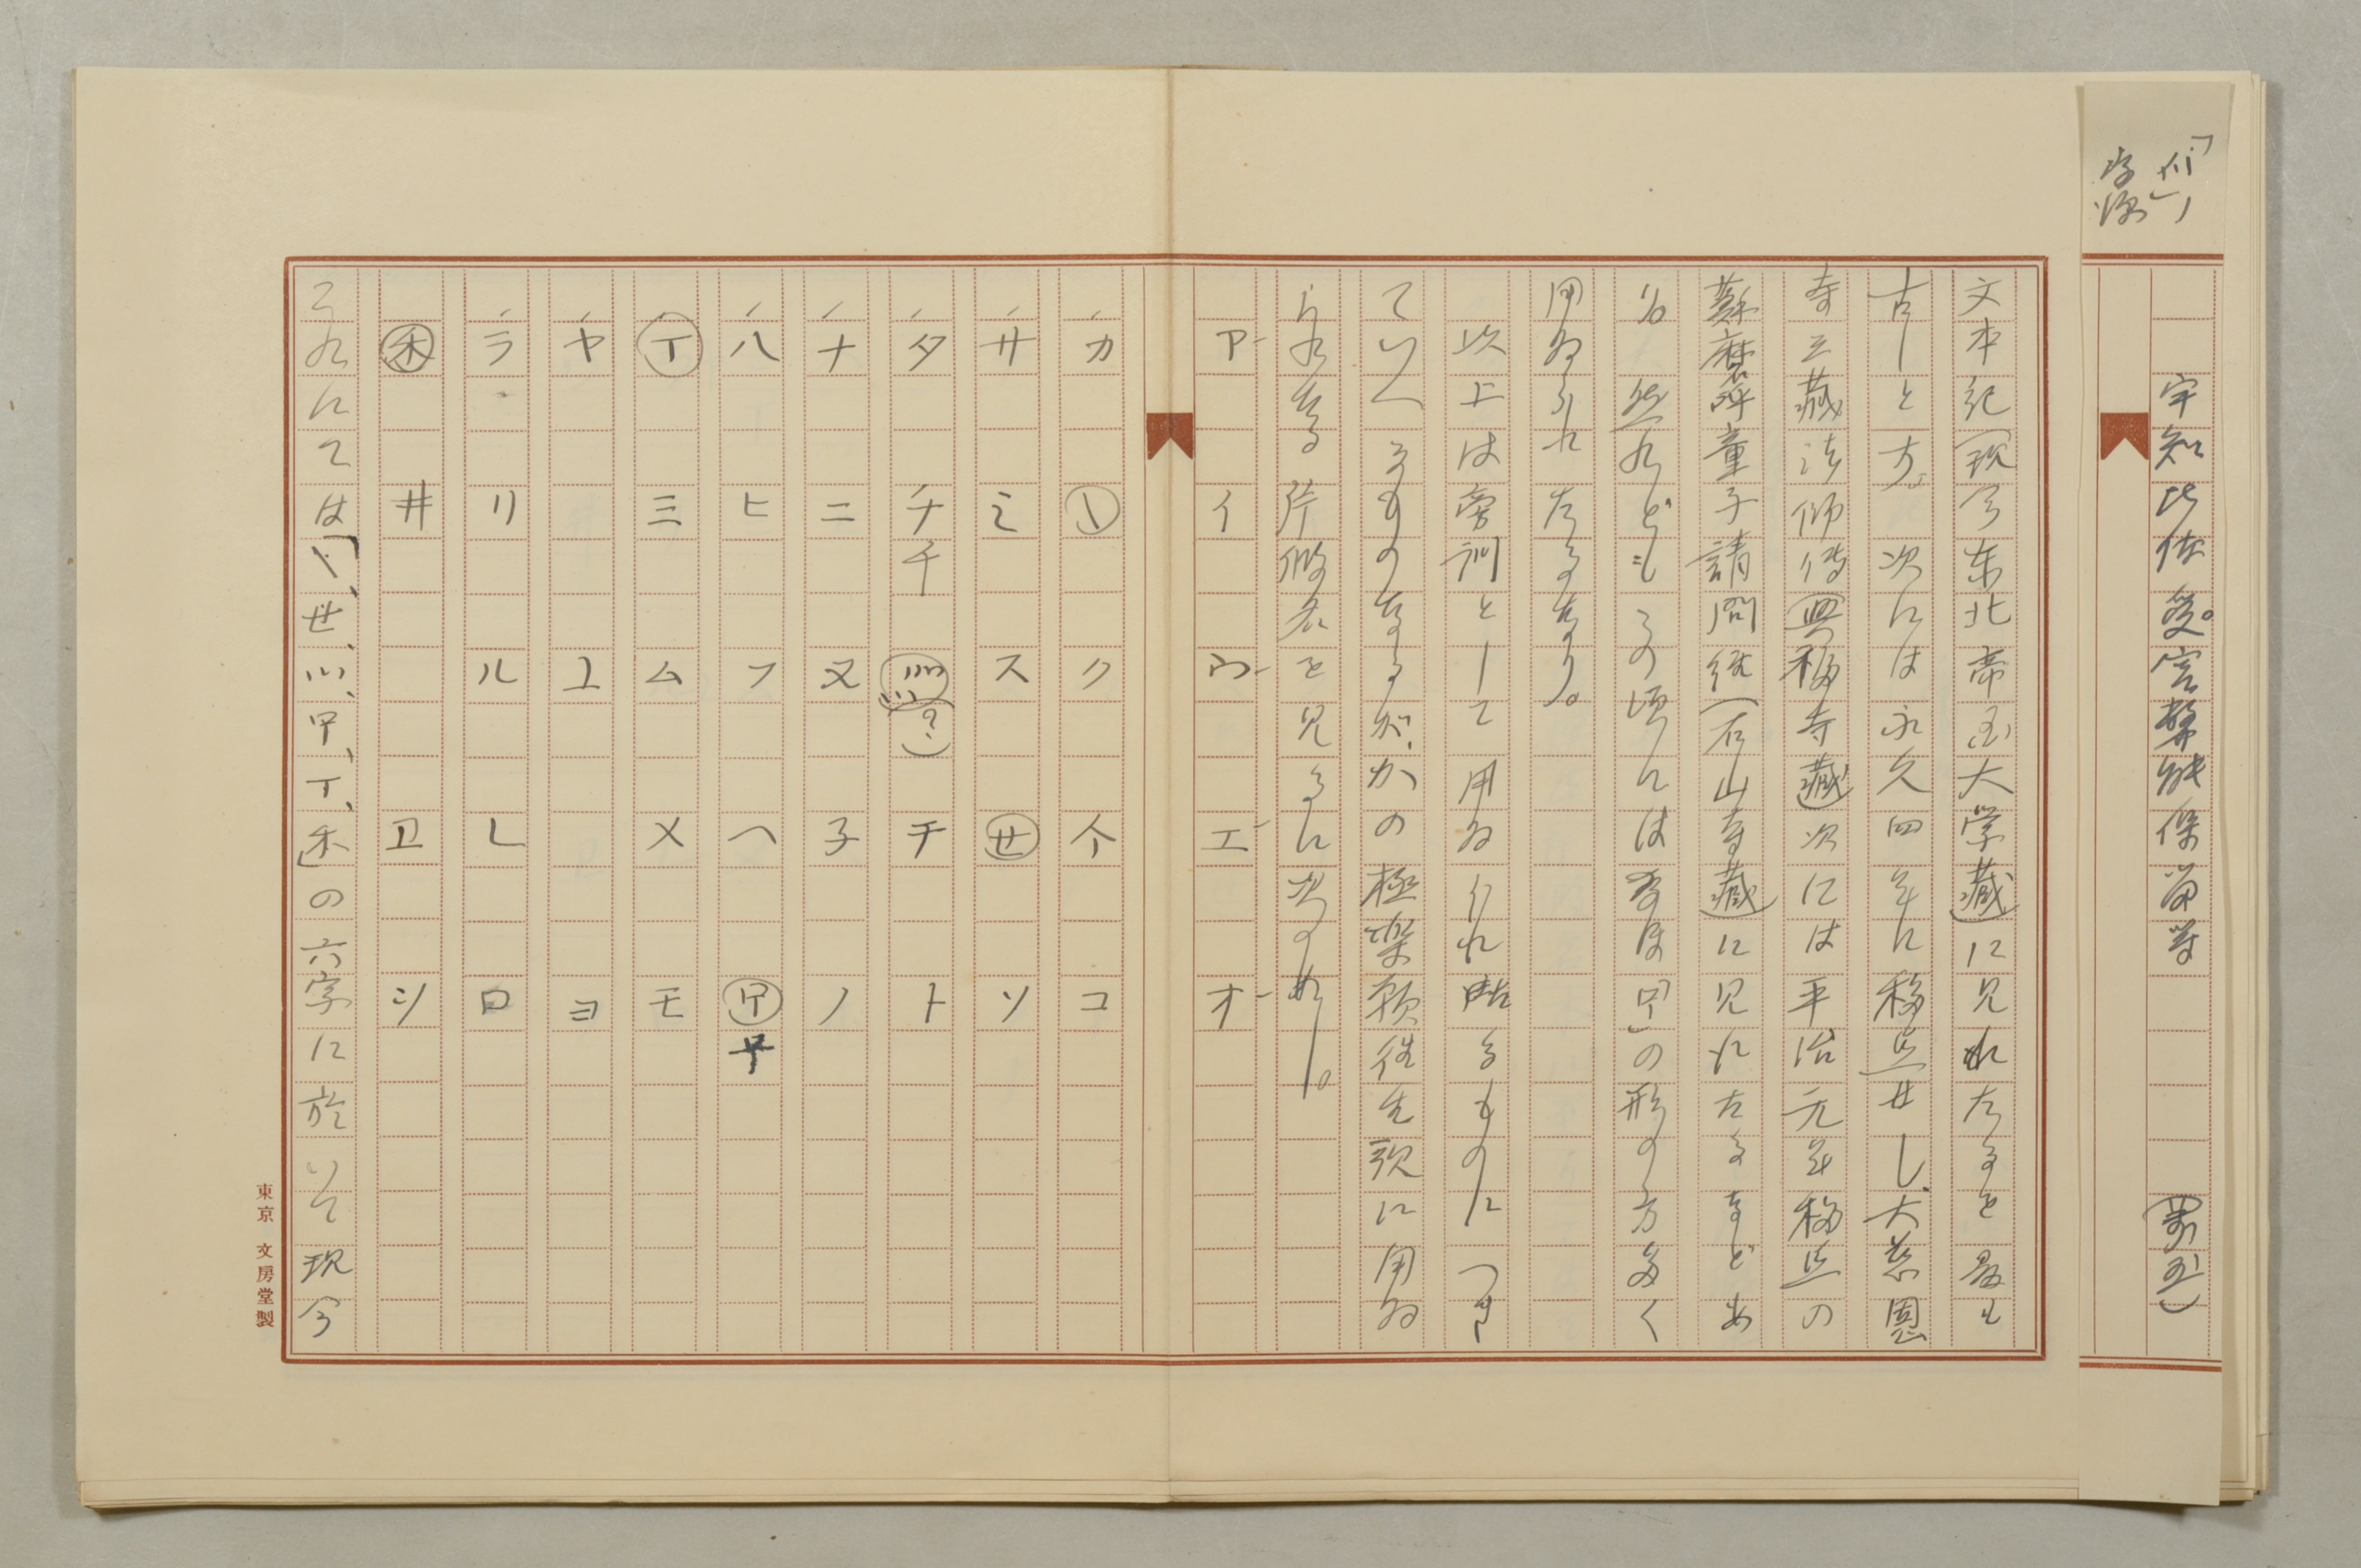 「爪」ノ
字源
宇知比佐受宮弊能保留等
文本記(現今東北帝国大学蔵)に見れたるを最も
古しとす。次には永久四年に移点せし、大慈恩
寺三蔵法師伝(興福寺蔵)次には平治元年移点の
蘇磨呼童子請問経(石山寺蔵)に見れたるなどあ
り。然れどもこの頃には猶ほ「㔾」の形の方多く
用ゐられたるなり。
以上は旁訓として用ゐられ居るものにつき
ていへるものなるが、かの極楽願往生歌に用ゐ
られたる片仮名を見るに次の如し。
ア イ ウ エ オ
カ 〵 ク 个 コ
サ ミ ス セ ソ
タ チ 千 爪(?) チ ト
ナ ニ ヌ 子 ノ
ハ ヒ フ ヘ 甲 㔾
丁 三 ム メ モ
ヤ ユ ヨ
ラ リ ル レ ロ
禾 井 ヱ シ
これにては「〵、世、爪、甲、丁、禾」の六字に於いて現今
東京 文房堂製